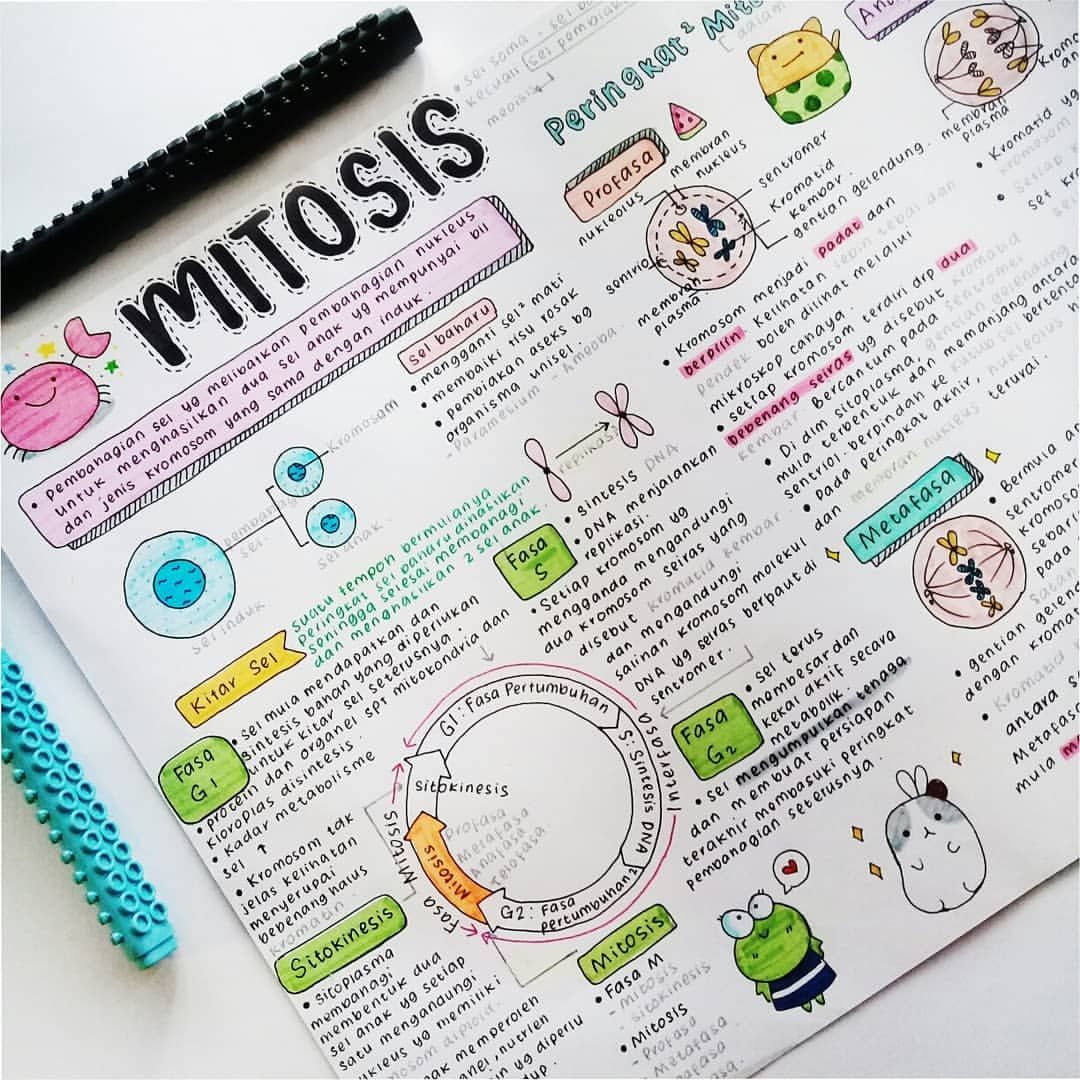 MITOSIS
• Pembahagian sel yg melibatkan pembahagian nukleus
untuk menghasilkan dua sel anak yg mempunyai bil
dan jenis kromosom yang sama dengan induk.
sel baharu
• mengganti sel² mati
• membaiki tisu rosak
• pembiakan aseks bg
organisma unisel.
- Paramesium - Amoeba
kromosom
pembahagian
sel.
sel anak.
sel induk
Kitar Sel
suatu tempoh bermulanya
peringkat sel baharu dihasilkan
sehingga selesai membahagi
dan menghasilkan 2 sel anak.
Fasa
G1
• sel mula mendapatkan dan
sintesis bahan yang diperlukan
untuk kitar sel seterusnya.
• protein dan organel spt mitokondria dan
kloroplas disintesis.
• Kadar metabolisme
sel ↑
• Kromosom tak
jelas kelihatan
menyerupai
bebenang halus
kromatin
Sitokinesis
• sitoplasma
membahagi
membentuk dua
sel anak yg setiap
satu mengandungi
nukleus yg memiliki
G1: Fasa Pertumbuhan
S: Sintesis DNA
G2: Fasa
pertumbuhan2
Interfasa
sitokinesis
Mitosis
Profasa
Metafasa
Anafasa
Telofasa
Fasa Mitosis
replikasi
Fasa
S
• sintesis DNA
• DNA menjalankan
replikasi.
• Setiap kromosom yg
mengganda mengandungi
dua kromosom seiras yang
disebut kromatid kembar.
dan mengandungi
salinan kromosom molekul
DNA yg seiras berpaut di
sentromer.
Fasa
G2
• sel terus
membesar dan
kekal aktif secara
metabolik.
• sel mengumpulkan tenaga
dan membuat persiapan
terakhir memasuki peringkat
pembahagian seterusnya.
Mitosis
• Fasa M
- mitosis
- sitokinesis
• Mitosis
- Profasa
- Metafasa
Peringkat² Mito
dalam
Profasa
membran
nukleus
nukleolus
sentromer
Kromatid
kembar.
gentian gelendung.
sentriol
membran
plasma.
• Kromosom menjadi padat dan
berpilin. Kelihatan
pendek boleh dilihat melalui
mikroskop cahaya.
• setiap kromosom terdiri drp dua
bebenang seiras yg disebut kromatid
kembar. Bercantum pada sentromer.
• Di dlm sitoplasma, gentian gelendung
mula terbentuk dan memanjang antara
sentriol. berpindah ke kutub sel bertenta
• Pada peringkat akhir, nukleolus
dan membran nukleus terurai.
Metafasa
• Bermula
sentromer
kromoso
sebari
pada
satah
• gentian gelen
dengan kroma
• Kromatid
antara s
Metafas
mula
membran
plasma
• Kromatid